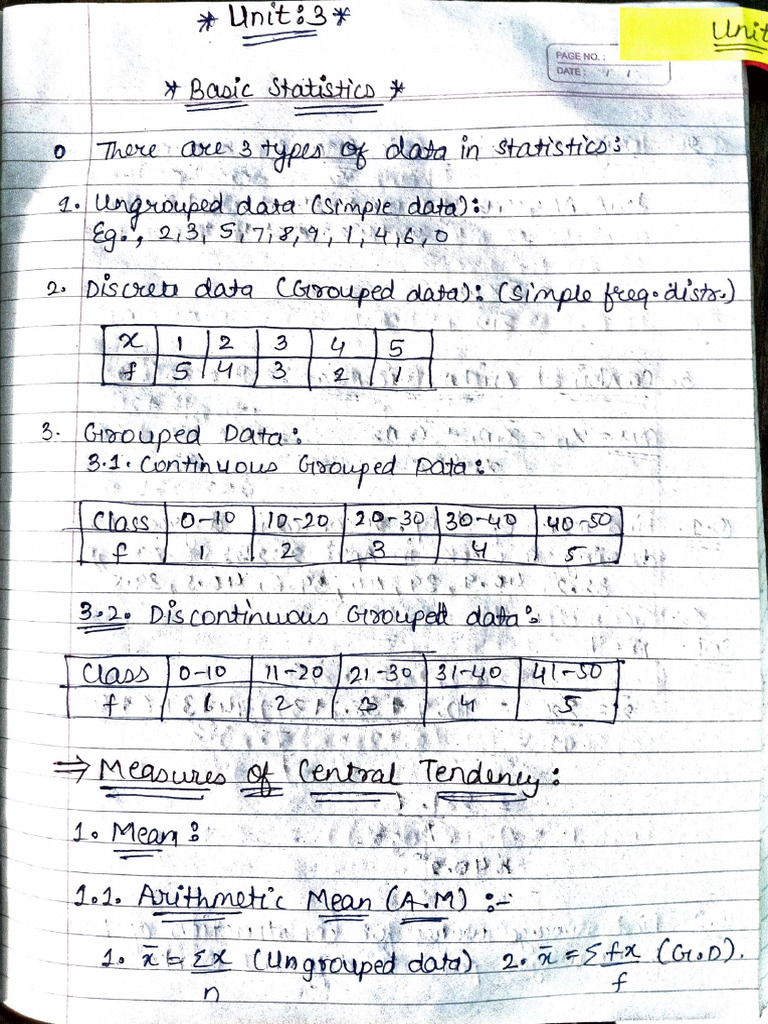 * Unit:3 *
Unit
PAGE NO.:
DATE: / /
* Basic Statistics *
o There are 3 types of data in statistics:
1. Ungrouped data (Simple data):
Eg., 2,3,5,7,8,9,1,4,6,0
2. Discrete data (Grouped data): (Simple freq. distr.)
x 1 2 3 4 5
f 5 4 3 2 1
3. Grouped Data:
3.1. Continuous Grouped Data:
Class 0-10 10-20 20-30 30-40 40-50
f 1 2 3 4 5
3.2. Discontinuous Grouped data:
Class 0-10 11-20 21-30 31-40 41-50
f 1 2 3 4 5
⇒ Measures of Central Tendency:
1. Mean:
1.1. Arithmetic Mean (A.M) :-
1. x̄ = Σx/n (Ungrouped data) 2. x̄ = Σfx/f (G.D).